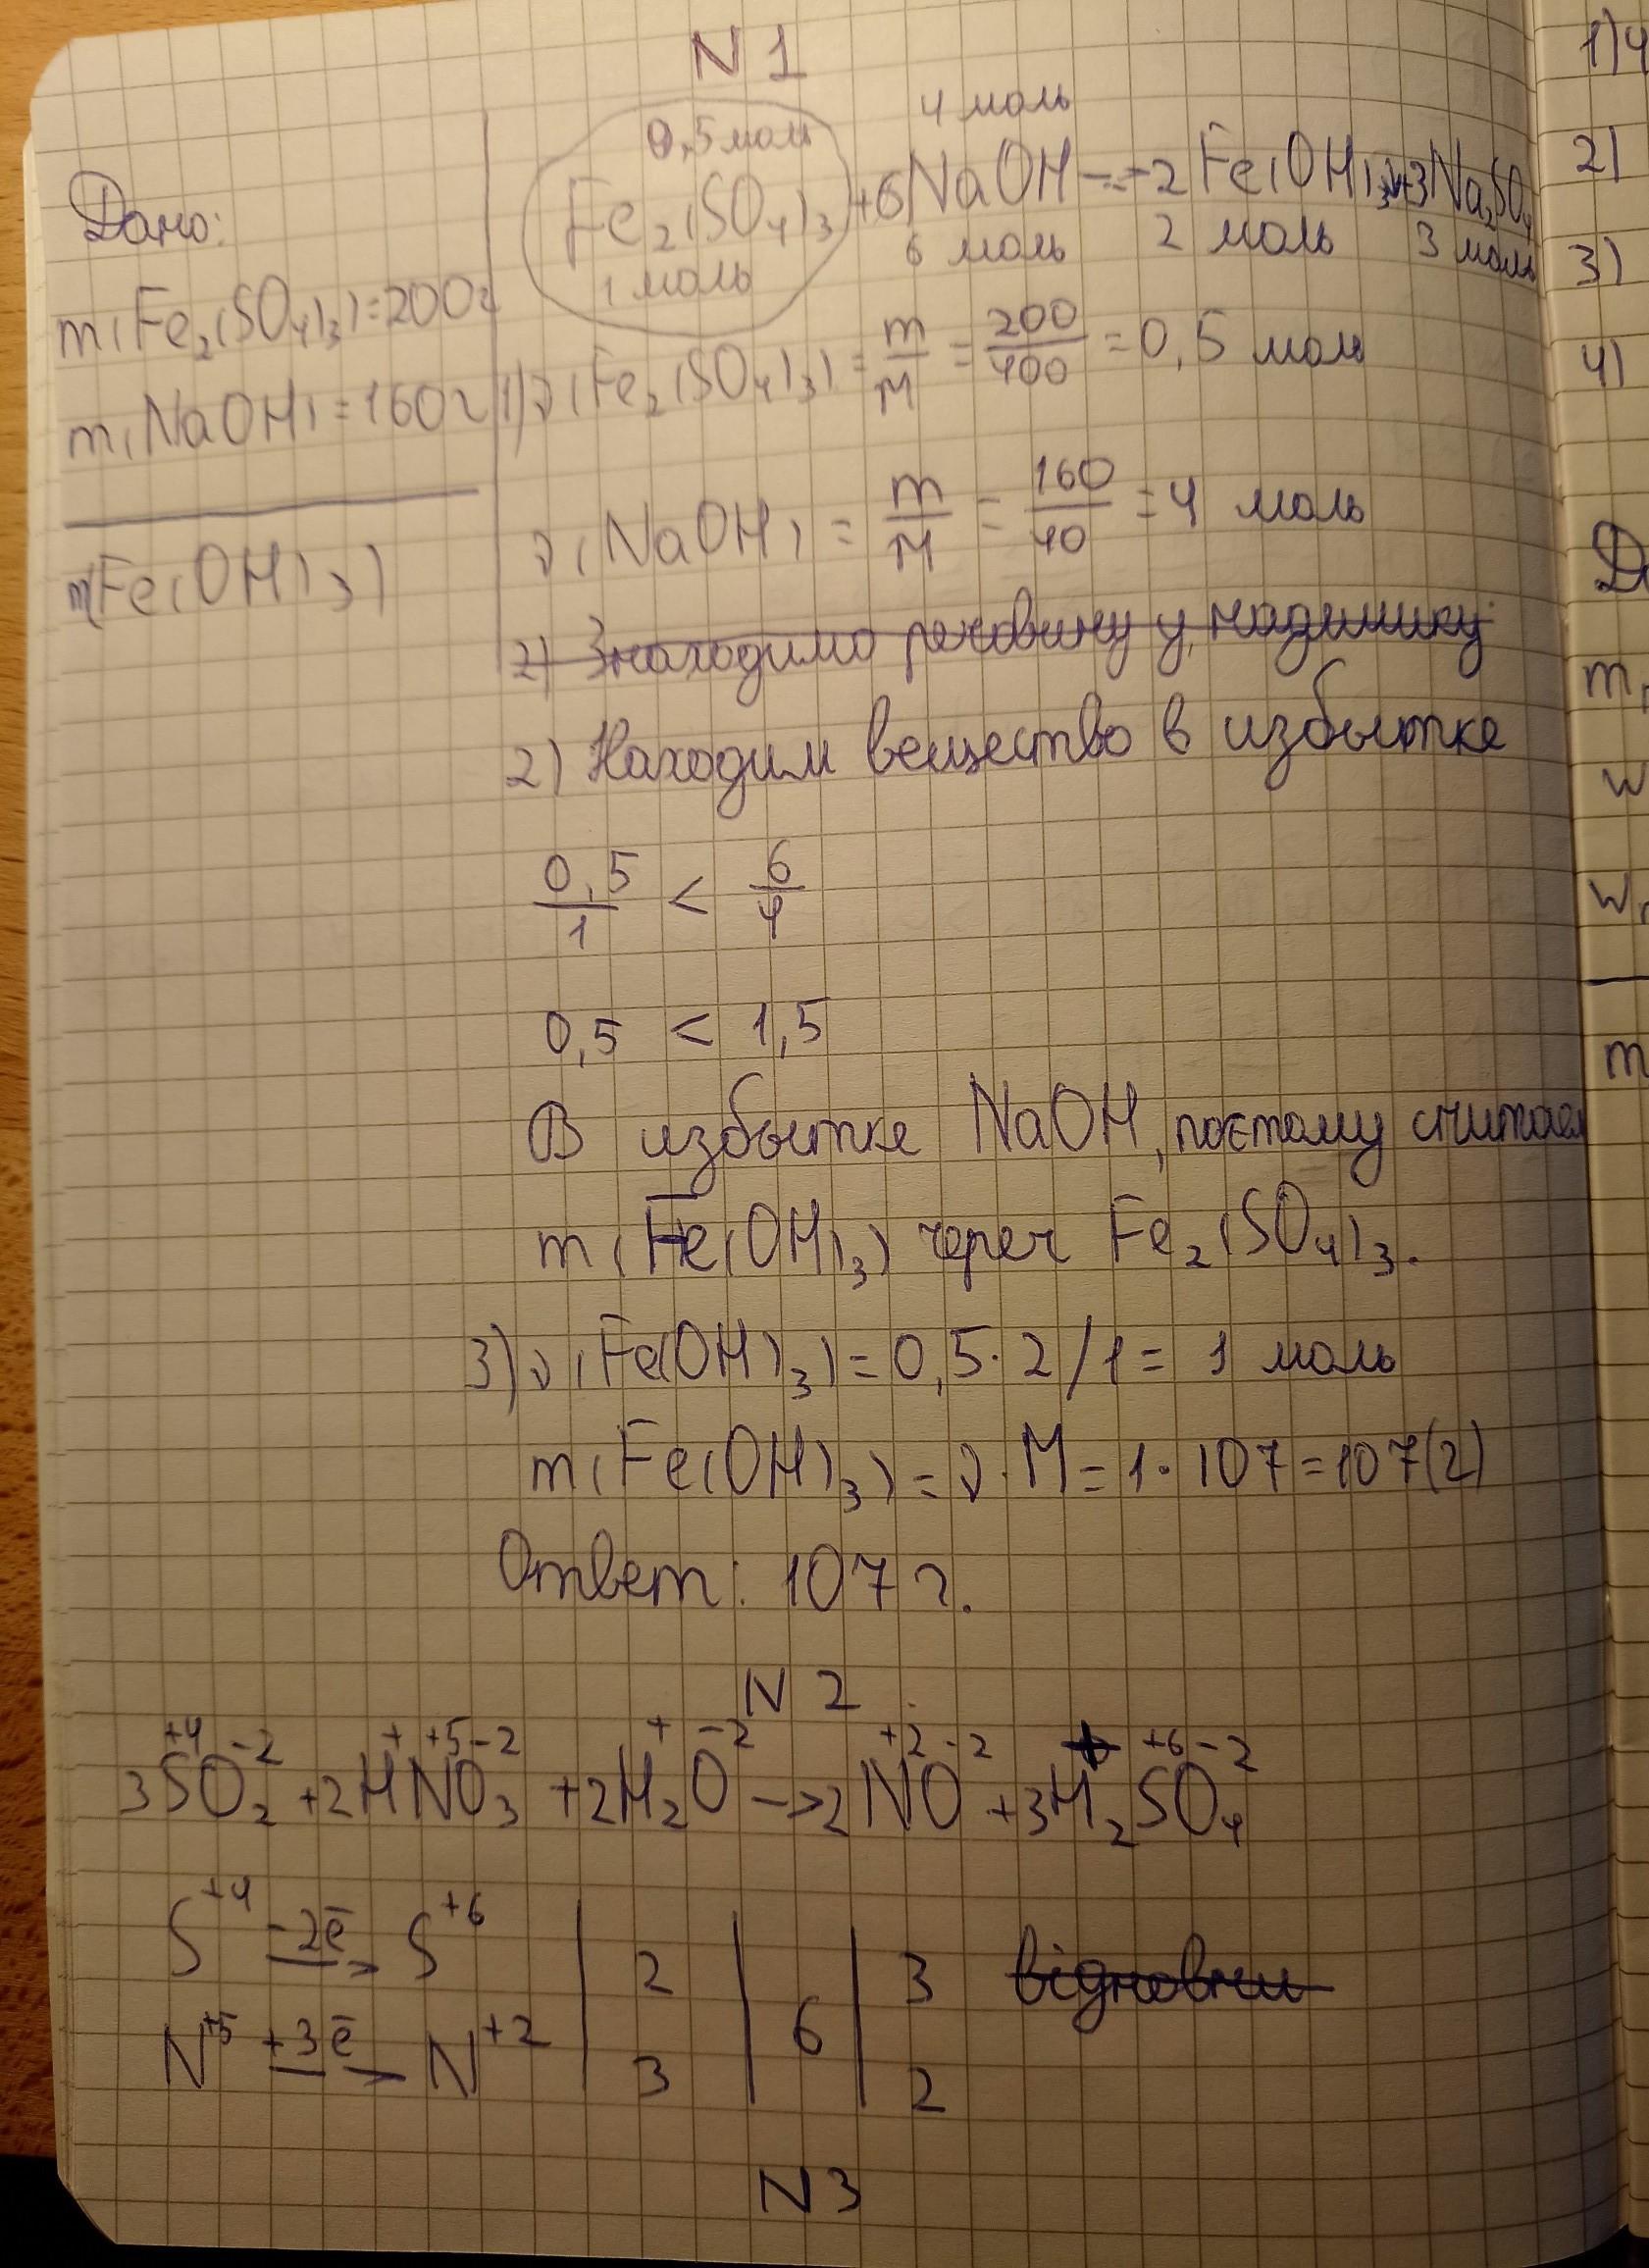 N 1
Дано:
m(Fe₂(SO₄)₃)=200г
m(NaOH)=160г
m(Fe(OH)₃)
0,5 моль 4 моль
Fe₂(SO₄)₃+6NaOH→2Fe(OH)₃↓+3Na₂SO₄
1 моль 6 моль 2 моль 3 моль
1) ν(Fe₂(SO₄)₃)=m/M=200/400=0,5 моль
ν(NaOH)=m/M=160/40=4 моль
2) Знаходимо речовину у надлишку:
2) Находим вещество в избытке
0,5/1 < 6/4
0,5 < 1,5
В избытке NaOH, поэтому считаем
m(Fe(OH)₃) через Fe₂(SO₄)₃.
3) ν(Fe(OH)₃)=0,5·2/1= 1 моль
m(Fe(OH)₃)=ν·M=1·107=107(г)
Ответ: 107 г.
N 2
+4 -2 + +5 -2 + -2 +2 -2 + +6 -2
3SO₂+2HNO₃+2H₂O→2NO+3H₂SO₄
S⁺⁴ -2e̅→ S⁺⁶ | 2 | 6 | 3 відновни
N⁺⁵ +3e̅→ N⁺² | 3 | | 2
N 3
1) 4
2)
3)
4)
Д
m(
w
w(
m